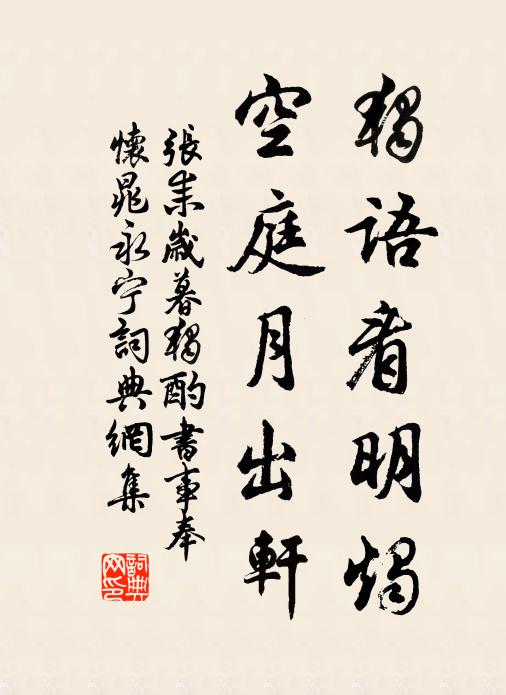 獨語看明燭
空庭月出軒
張耒歲暮獨酌書事奉
懷晁永宁詞典網集
詞典網印